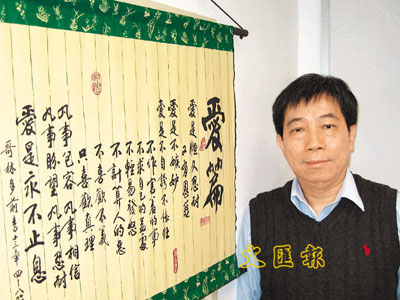 愛篇
愛是恆久忍耐
又有恩慈
愛是不嫉妒
愛是不自誇不張狂
不作害羞的事
不求自己的益處
不輕易發怒
不計算人的惡
不喜歡不義
只喜歡真理
凡事包容 凡事相信
凡事盼望 凡事忍耐
愛是永不止息
哥林多前書十三章四-八
文匯報